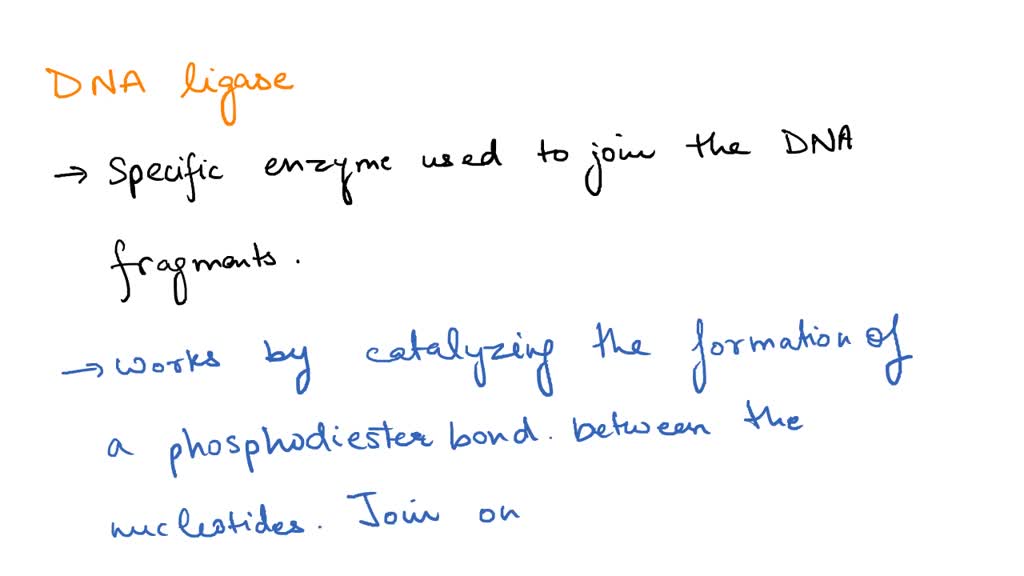 DNA ligase
→ Specific enzyme used to join the DNA
fragments.
→ works by catalyzing the formation of
a phosphodiester bond. between the
nucleotides. Join on